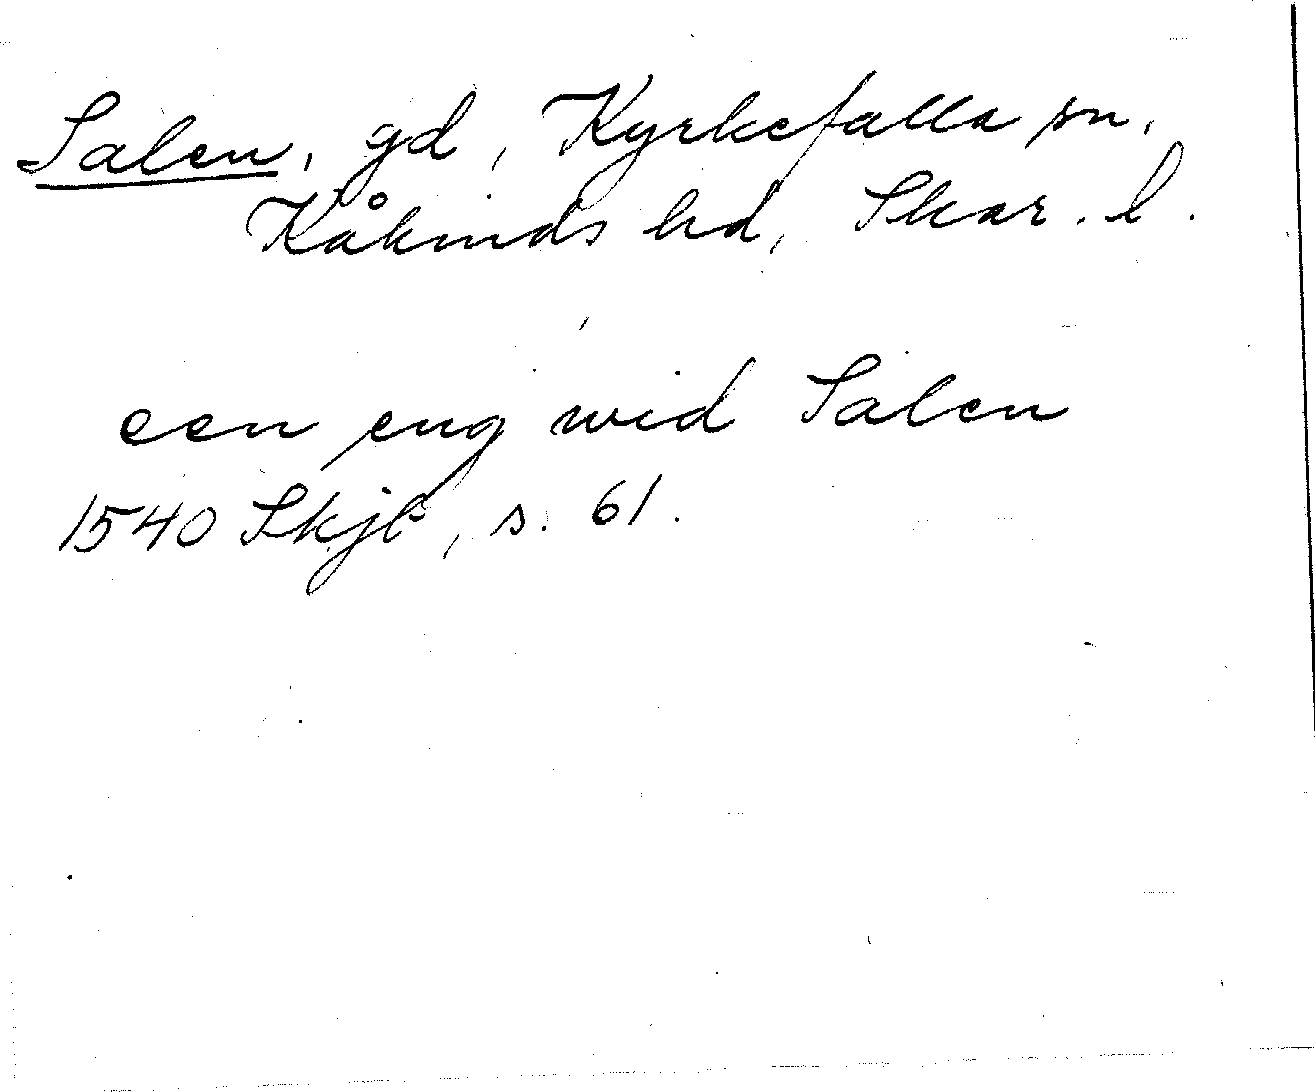 Salen, gd, Kyrkefalla sn,
Kåkinds hd, Skar. l.
een eng wid Salen
1540 Skjb, s. 61.